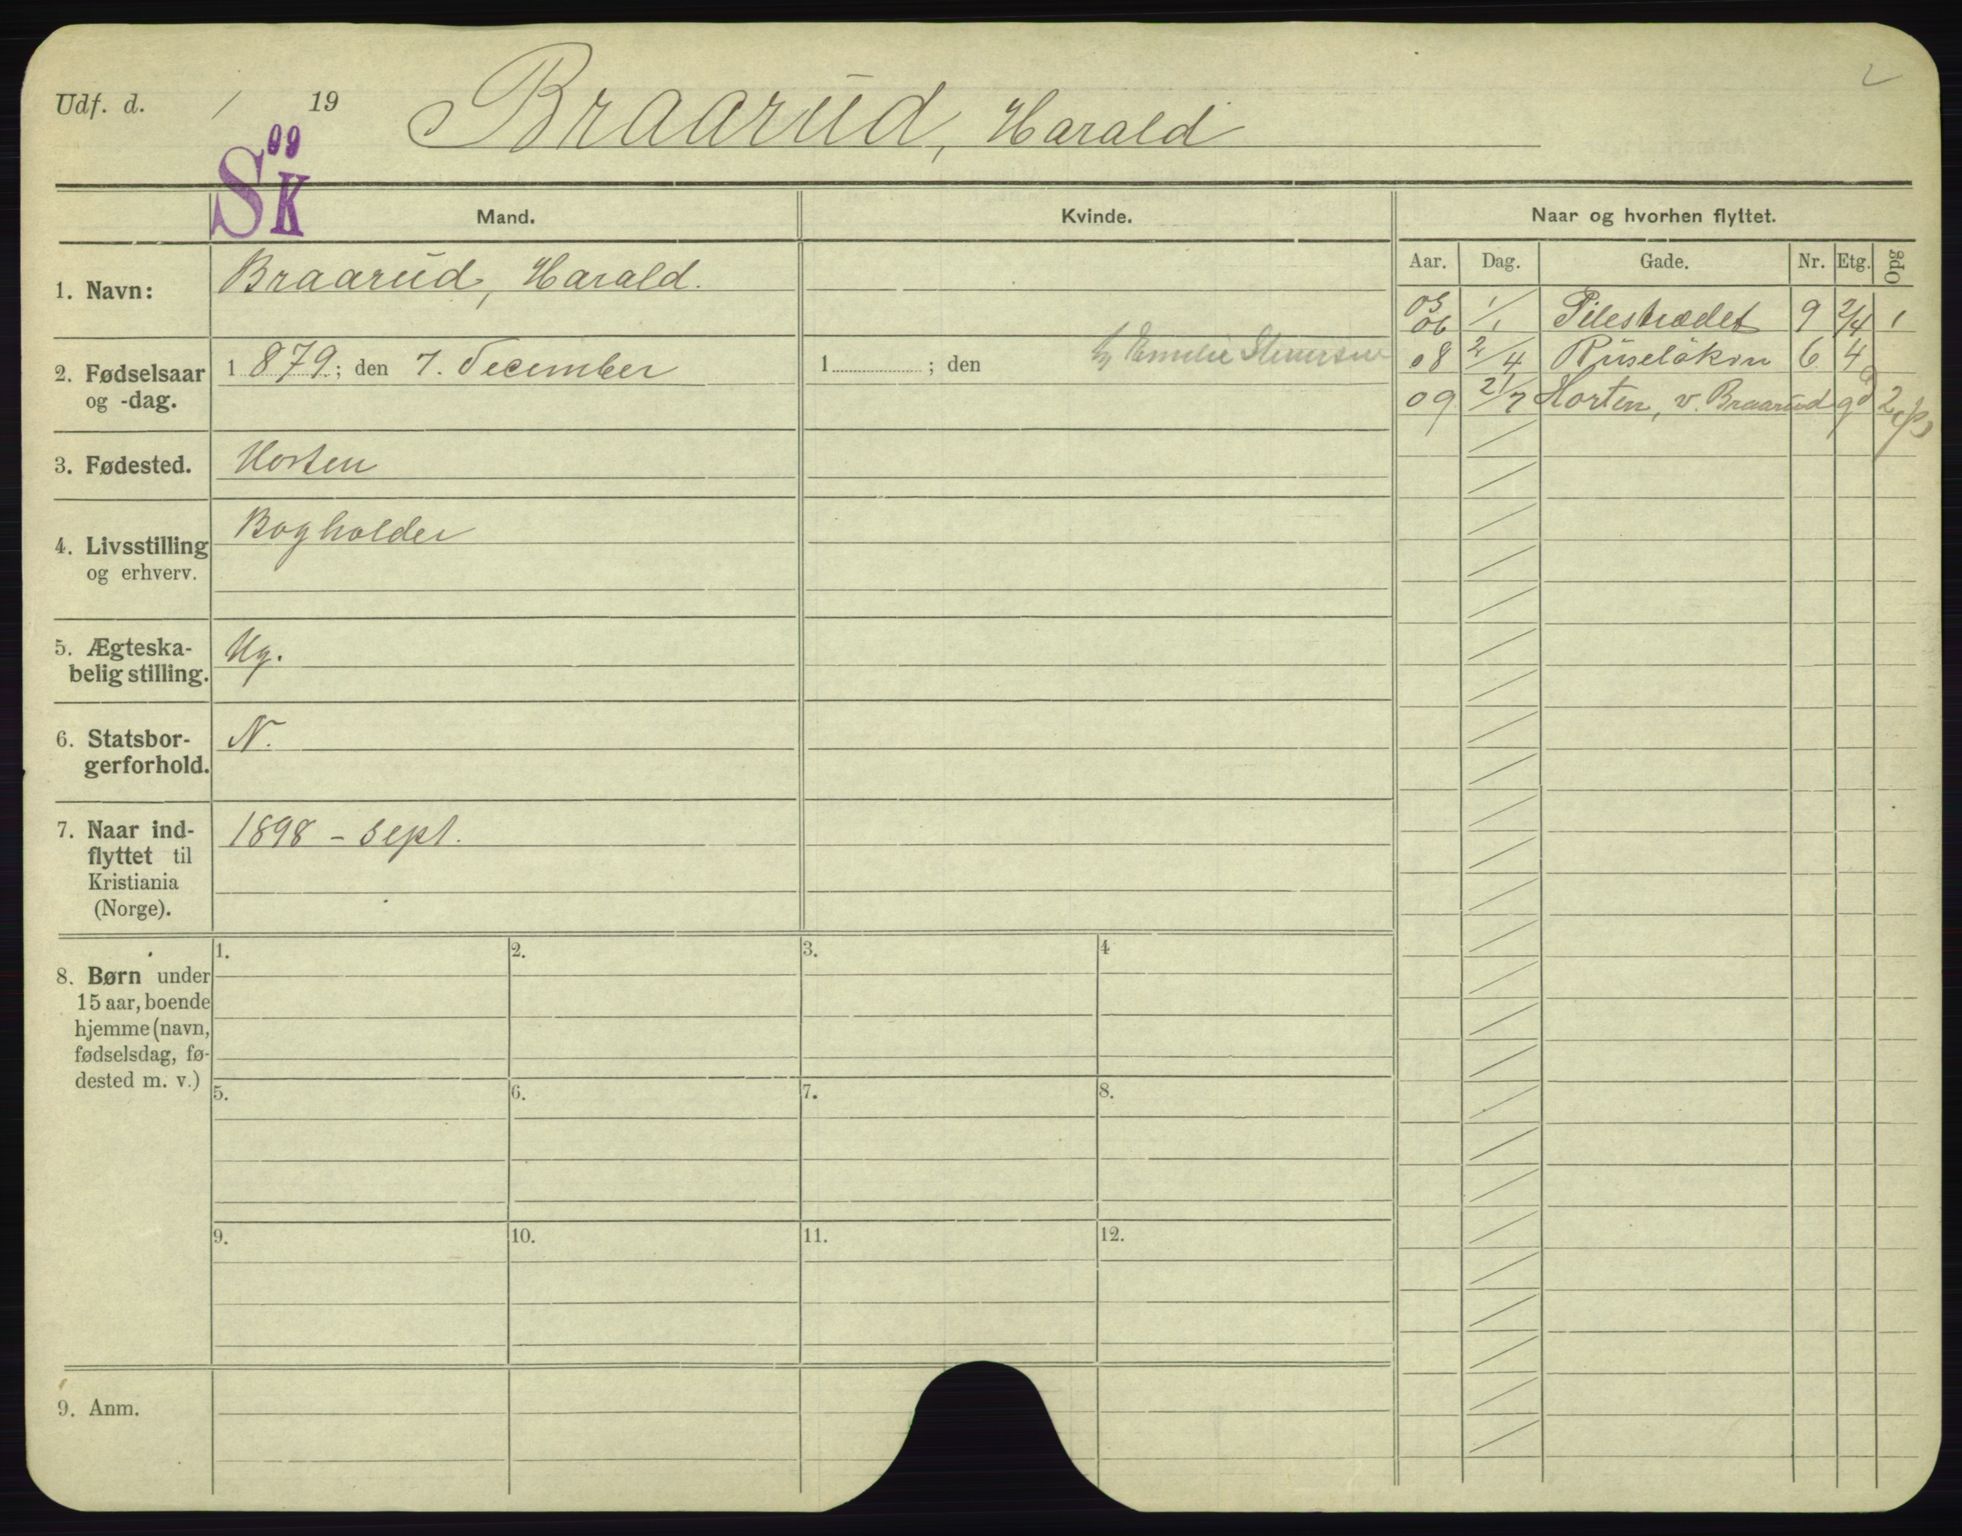 Udf. d. / 19 Braarud, Harald
2
09
SK
Mand. Kvinde. Naar og hvorhen flyttet.
Aar. Dag. Gade. Nr. Etg. Opg
1. Navn: Braarud, Harald.
05
06 1/1 Pilestrædet 9 2/4 1
08 2/4 Ruseløkvn 6 4
09 21/7 Horten, v. Braarud
2. Fødselsaar og -dag. 1879; den 7. December
1 ; den Emelie
3. Fødested. Horten
4. Livsstilling og erhverv. Bogholder
5. Ægteska-
belig stilling. Ug.
6. Statsbor-
gerforhold. N.
7. Naar ind-
flyttet til
Kristiania
(Norge). 1898 - sept.
8. Børn under
15 aar, boende
hjemme (navn,
fødselsdag, fø-
dested m. v.)
1. 2. 3. 4
5. 6. 7. 8.
9. 10. 11. 12.
9. Anm.